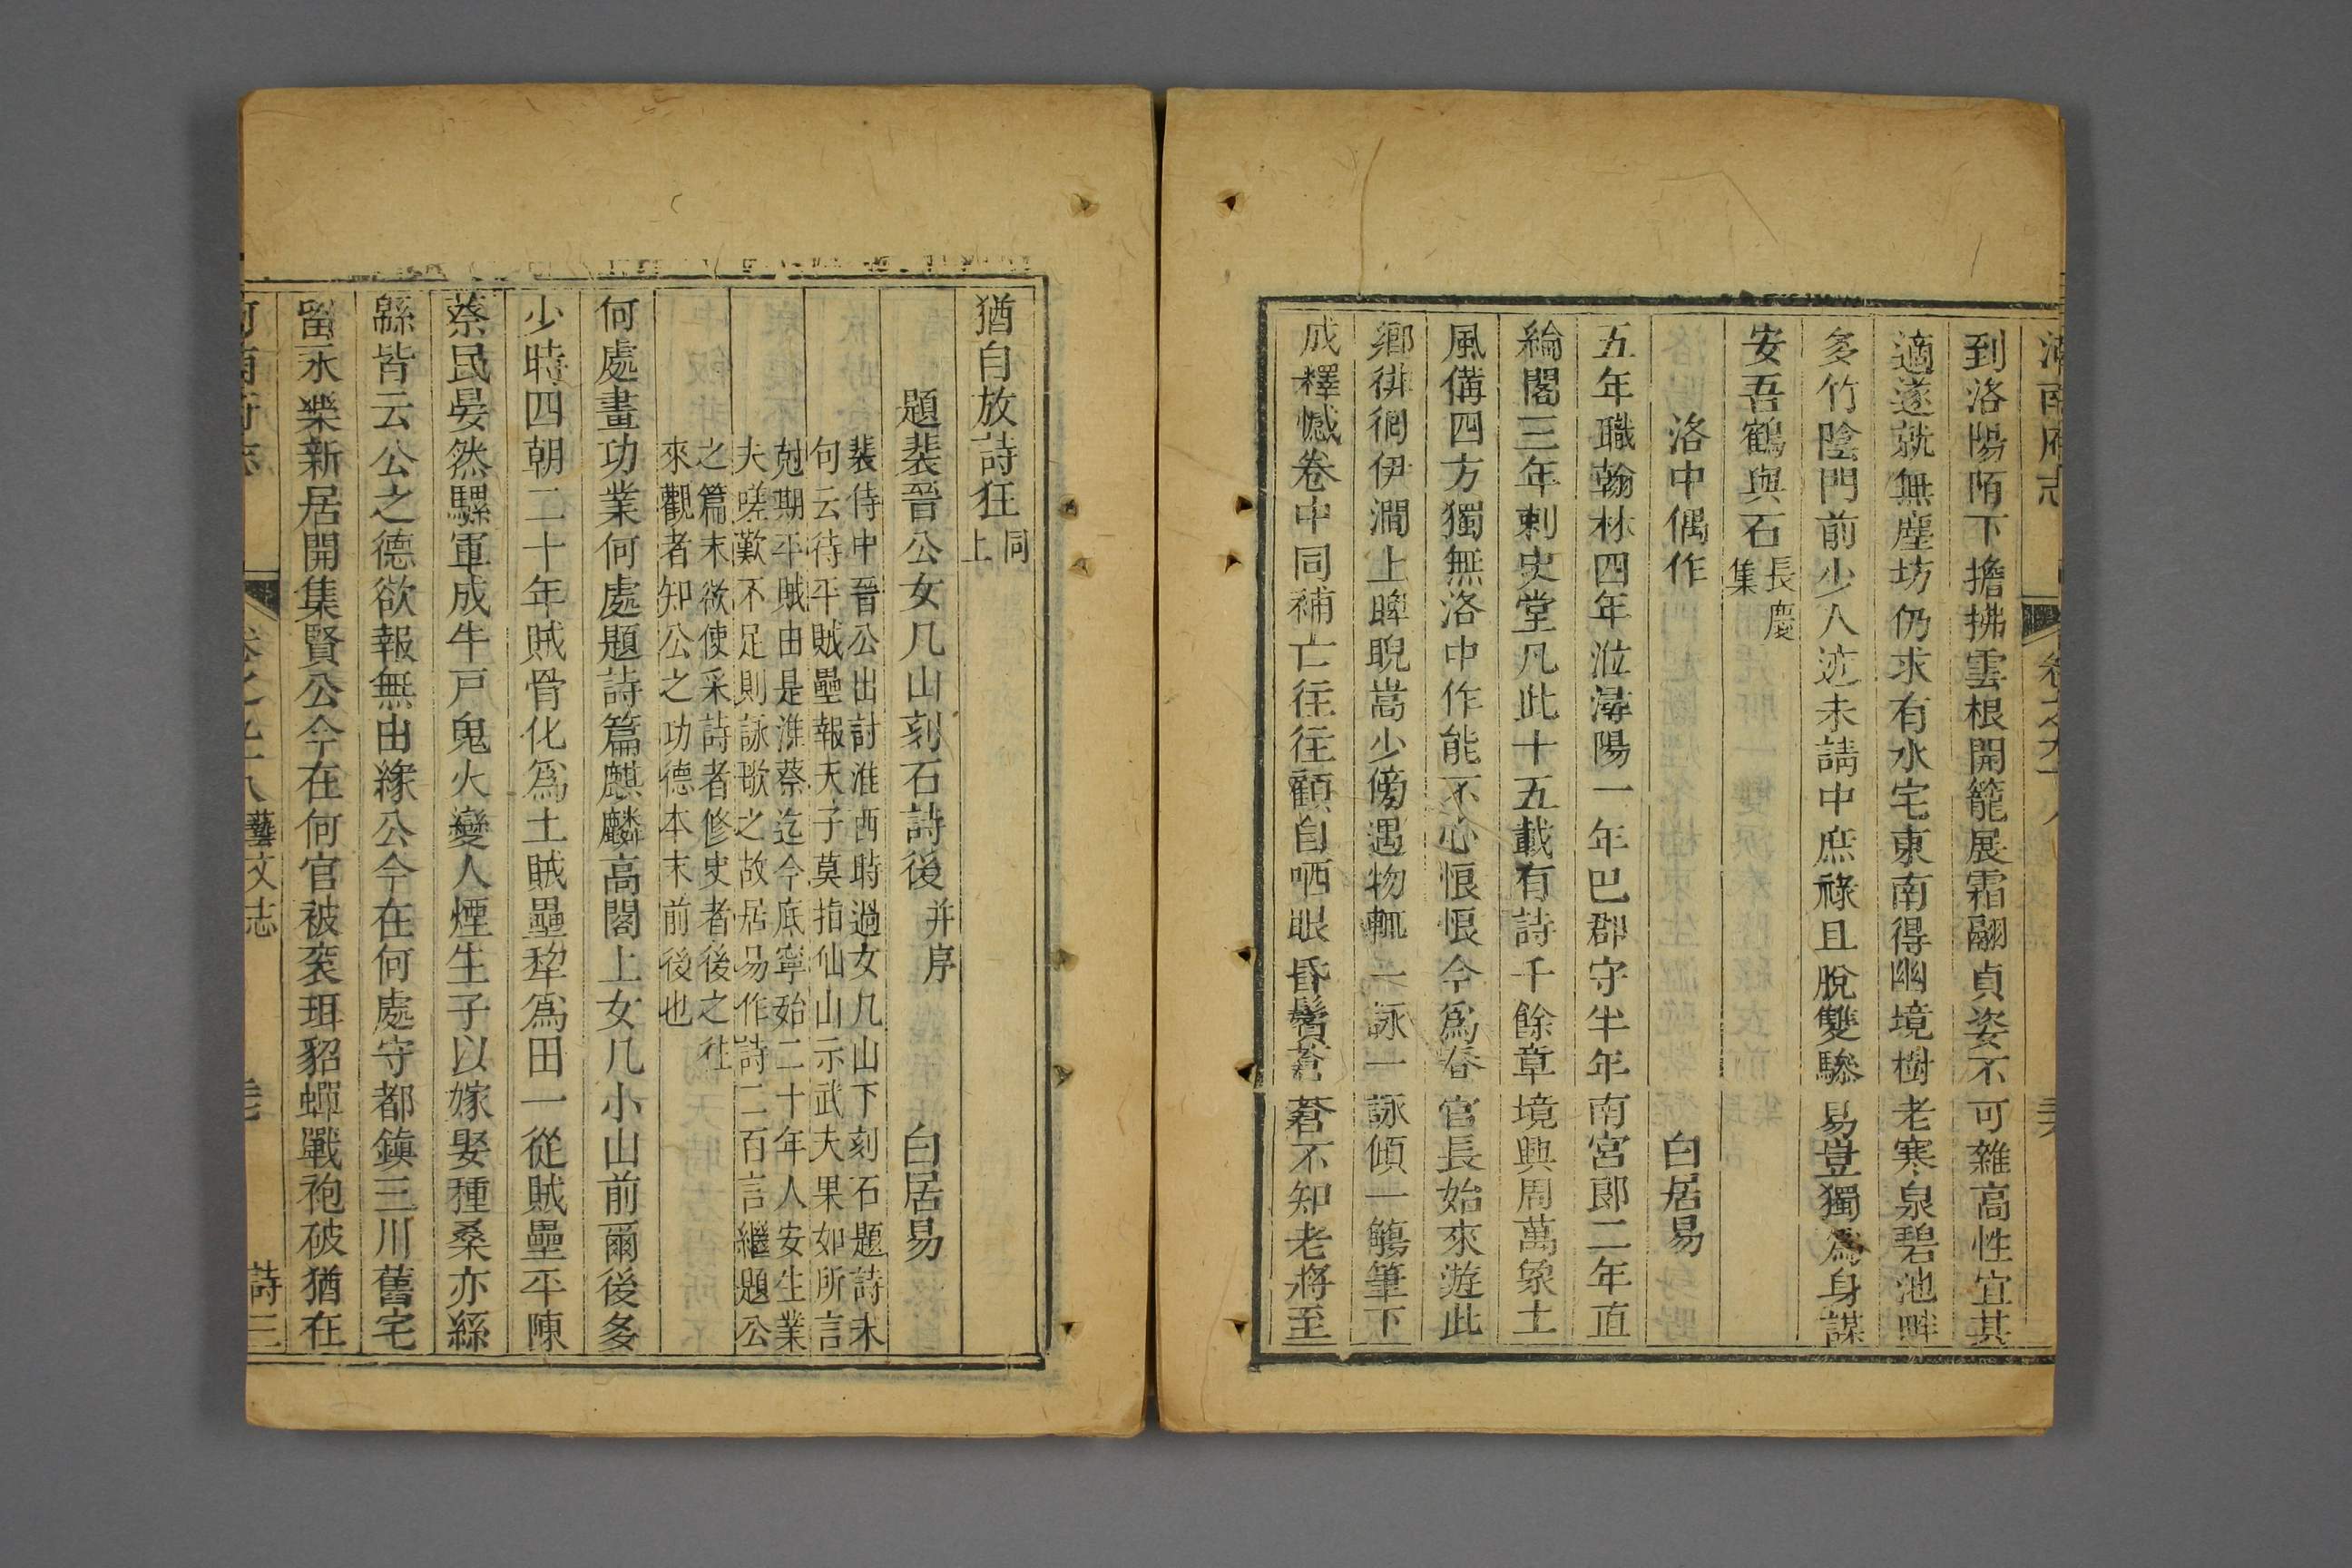 河南府志 卷之九十八
到洛陽陌下擔拂雲根開籠展霜翮貞姿不可雜高性宜其
適遂就無塵坊仍求有水宅東南得幽境樹老寒泉碧池畔
多竹陰門前少人迹未請中庶祿且脫雙驂易豈獨為身謀
安吾鶴與石長慶集
洛中偶作 白居易
五年職翰林四年涖潯陽一年巴郡守半年南宮郎二年直
綸閣三年刺史堂凡此十五載有詩千餘章境興周萬象土
風備四方獨無洛中作能不心悢悢今為春官長始來遊此
鄉徘徊伊澗上睥睨嵩少傍遇物輒一詠一詠傾一觴筆下
成釋憾卷中同補亡往往顧自哂眼昏鬢蒼蒼不知老將至
猶自放詩狂同上
題裴晉公女几山刻石詩後并序 白居易
裴侍中晉公出討淮西時過女几山下刻石題詩末
句云待平賊壘報天子莫指仙山示武夫果如所言
尅期平賊由是淮蔡迄今底寧殆二十年人安生業
夫嗟歎不足則詠歌之故居易作詩二百言繼題公
之篇末欲使采詩者修史者後之往
來觀者知公之功德本末前後也
何處畫功業何處題詩篇麒麟高閣上女几小山前爾後多
少時四朝二十年賊骨化為土賊壘犂為田一從賊壘平陳
蔡民晏然騾軍成牛戶鬼火變人煙生子以嫁娶種桑亦絲
緜皆云公之德欲報無由緣公今在何處守都鎮三川舊宅
留永樂新居開集賢公今在何官被袞珥貂蟬戰袍破猶在
河南府志 卷之九十八 藝文志 詩三